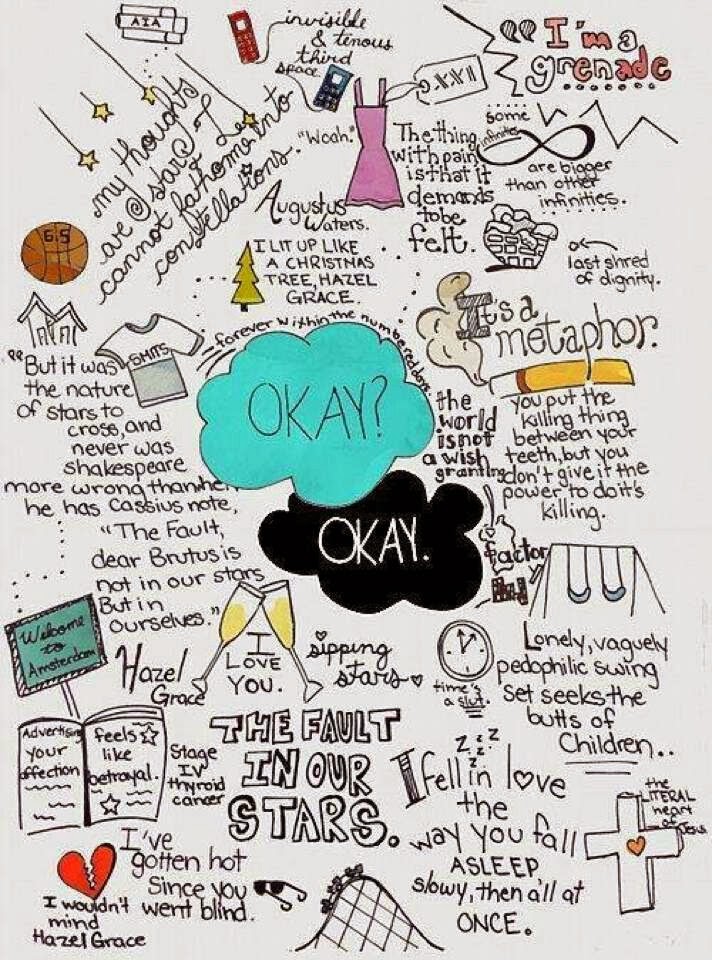 AIA
invisible
& tenous
third
space
"I'm a
grenade
my thoughts
are @ stars I
cannot fathom into
constellations.
XXI
"Woah."
The thing
with pain
is that it
demands
to be
felt.
some
infinities
are bigger
than other
infinities.
Augustus
Waters.
6.5
I LIT UP LIKE
A CHRISTMAS
TREE, HAZEL
GRACE.
last shred
of dignity.
It's a
metaphor.
SMITS
forever within the numbered days.
"But it was
the nature
of stars to
cross, and
never was
shakespeare
more wrong than when
he has Cassius note,
"The Fault,
dear Brutus is
not in our stars
But in
ourselves."
OKAY?
OKAY.
the
world
is not
a wish
granting
factor
you put the
killing thing
between your
teeth, but you
don't give it the
power to do it's
killing.
Welcome
to
Amsterdam
Hazel
Grace
I
LOVE
YOU.
sipping
stars
time's
a slut.
Lonely, vaguely
pedophilic swing
set seeks the
butts of
Children..
Advertising
your
affection
feels
like
betrayal.
Stage
IV
thyroid
cancer
THE FAULT
IN OUR
STARS.
z z z
z
I fell in love
the
way you fall
ASLEEP,
slowy, then all at
ONCE.
the
LITERAL
heart
of
Jesus
I've
gotten hot
Since you
went blind.
I wouldn't
mind
Hazel Grace